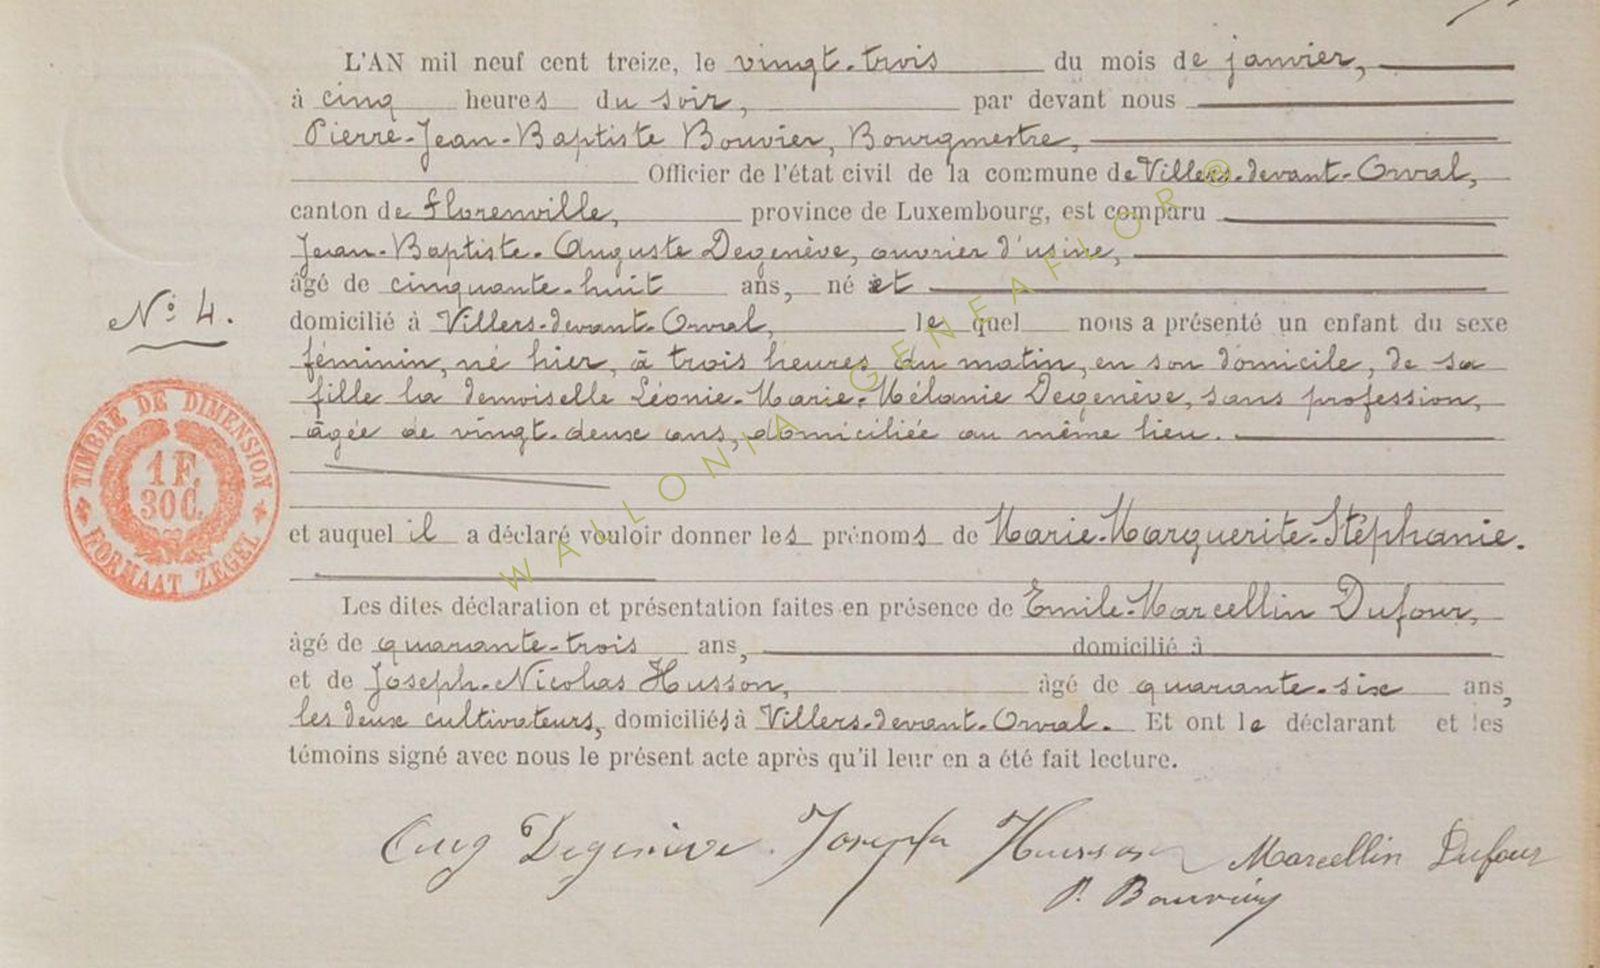 L'AN mil neuf cent treize, le vingt-trois du mois de janvier,
à cinq heures du soir, par devant nous
Pierre-Jean-Baptiste Bouvier, Bourgmestre,
Officier de l'état civil de la commune de Villers-devant-Orval,
canton de Florenville, province de Luxembourg, est comparu
Jean-Baptiste-Auguste Degenève, ouvrier d'usine,
âgé de cinquante-huit ans, né et
domicilié à Villers-devant-Orval, le quel nous a présenté un enfant du sexe
féminin, né hier, à trois heures du matin, en son domicile, de sa
fille la demoiselle Léonie-Marie-Mélanie Degenève, sans profession,
âgée de vingt-deux ans, domiciliée au même lieu.
et auquel il a déclaré vouloir donner les prénoms de Marie-Marguerite-Stéphanie.
Les dites déclaration et présentation faites en présence de Emile-Marcellin Dufour,
âgé de quarante-trois ans, domicilié à
et de Joseph-Nicolas Husson, âgé de quarante-six ans,
les deux cultivateurs, domiciliés à Villers-devant-Orval. Et ont le déclarant et les
témoins signé avec nous le présent acte après qu'il leur en a été fait lecture.
Nº 4.
TIMBRE DE DIMENSION
1 F.
30 C.
FORMAAT ZEGEL
WALLONIA GENEAFLOR ®
Aug Degenève. Joseph Husson Marcellin Dufour
P. Bouvier